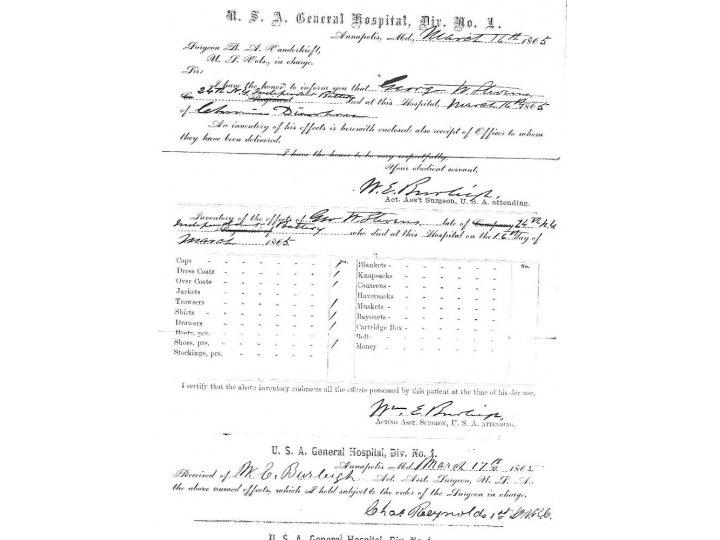 U. S. A. General Hospital, Div. No. 1.
Annapolis, Md., March 16th 1865
Surgeon B. A. Vanderkieft,
U. S. Vols., in charge.
Sir:
I have the honor to inform you that George W. Stevens
Co 24th N.Y. Independent Battery Regiment died at this Hospital, March 16th 1865
of Chronic Diarrhoea
An inventory of his effects is herewith enclosed; also receipt of Officer to whom
they have been delivered.
I have the honor to be very respectfully,
Your obedient servant,
W. E. Burleigh,
Act. Ass't Surgeon, U. S. A. attending.
Inventory of the effects of Geo W. Stevens, late of Company 24th N.Y.
Independent Battery Regiment of who died at this Hospital on the 16th day of
March 1865
No. No.
Caps - Blankets -
Dress Coats - 1 Knapsacks -
Over Coats - 1 Canteens -
Jackets Haversacks
Trowsers 1 Muskets -
Shirts - 1 Bayonets -
Drawers 1 Cartridge Box -
Boots, prs. Belt-
Shoes, prs. 1 Money -
Stockings, prs.
I certify that the above inventory embraces all the effects possessed by this patient at the time of his decease,
Wm. E. Burleigh,
Acting Asst. Surgeon, U. S. A. attending.
U. S. A. General Hospital, Div. No. 1.
Annapolis Md. March 17th 1865.
Received of W. E. Burleigh Act. Asst. Surgeon, U. S. A.
the above named effects, which I hold subject to the order of the Surgeon in charge.
Chas Reynolds 1st Lt.
U. S. A. General Hospital, Div. No. 1.